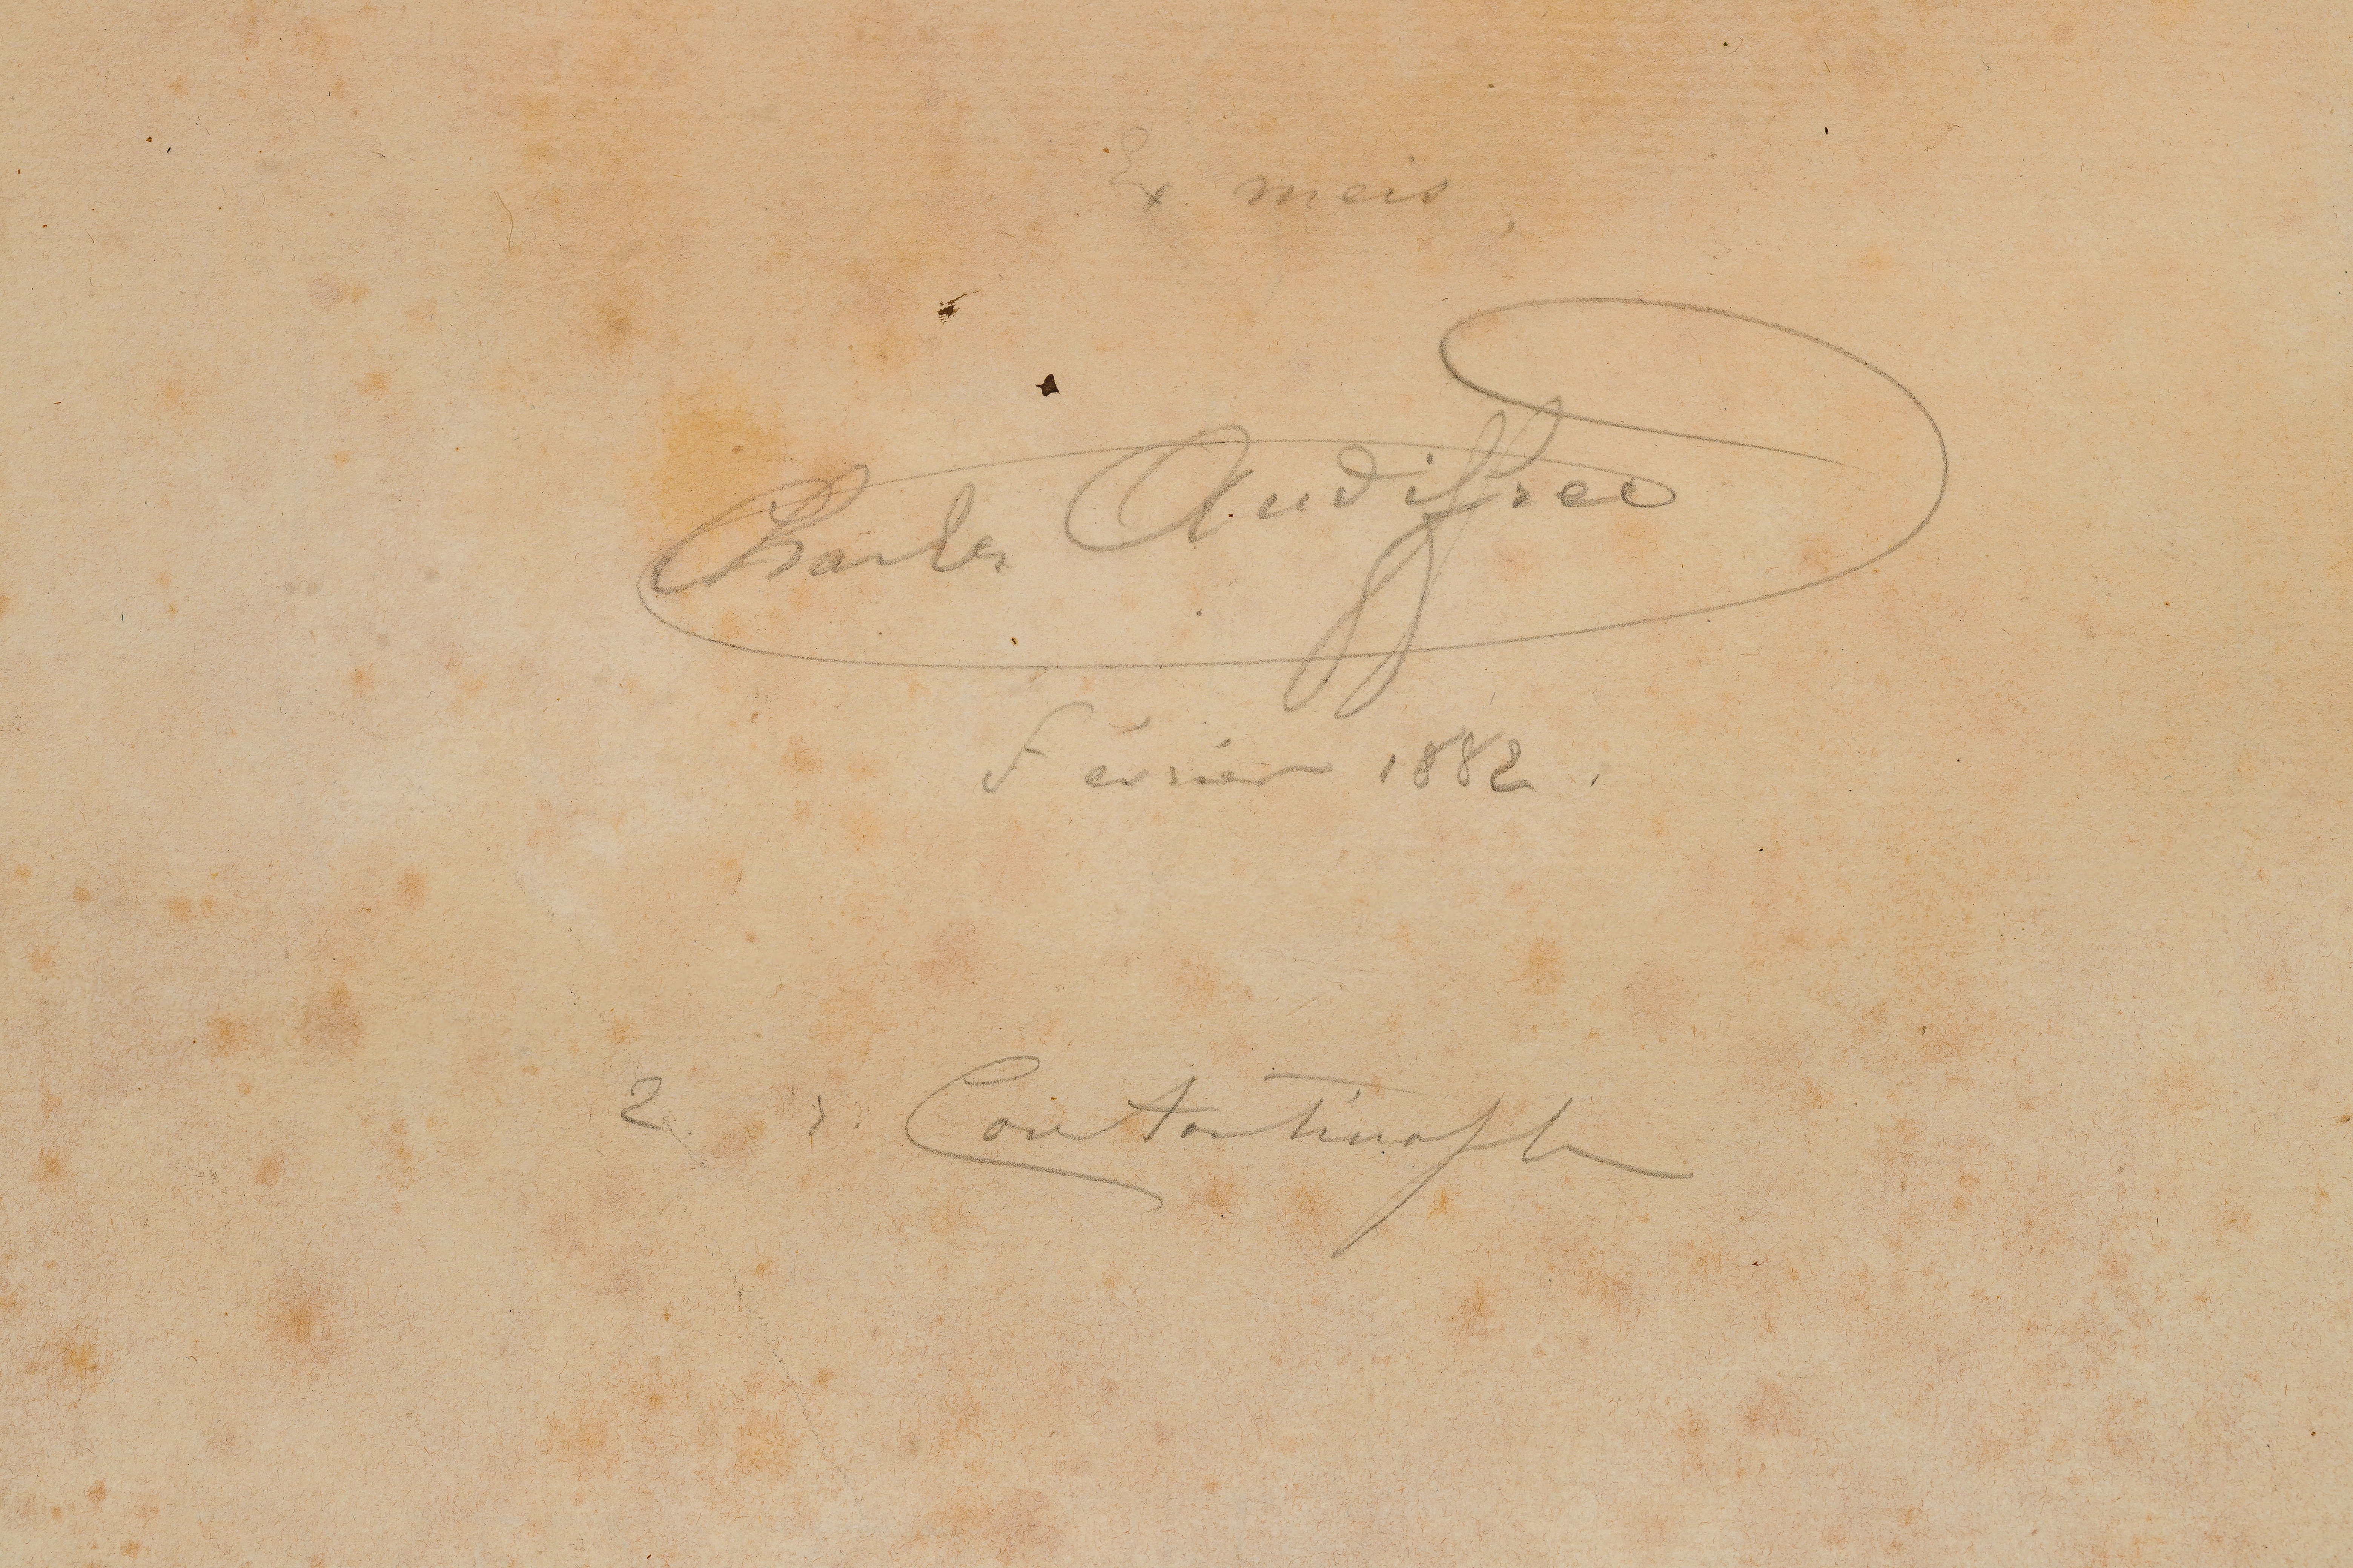 Ex meis
Charles Audiffred
Février 1882.
2 Constantinople